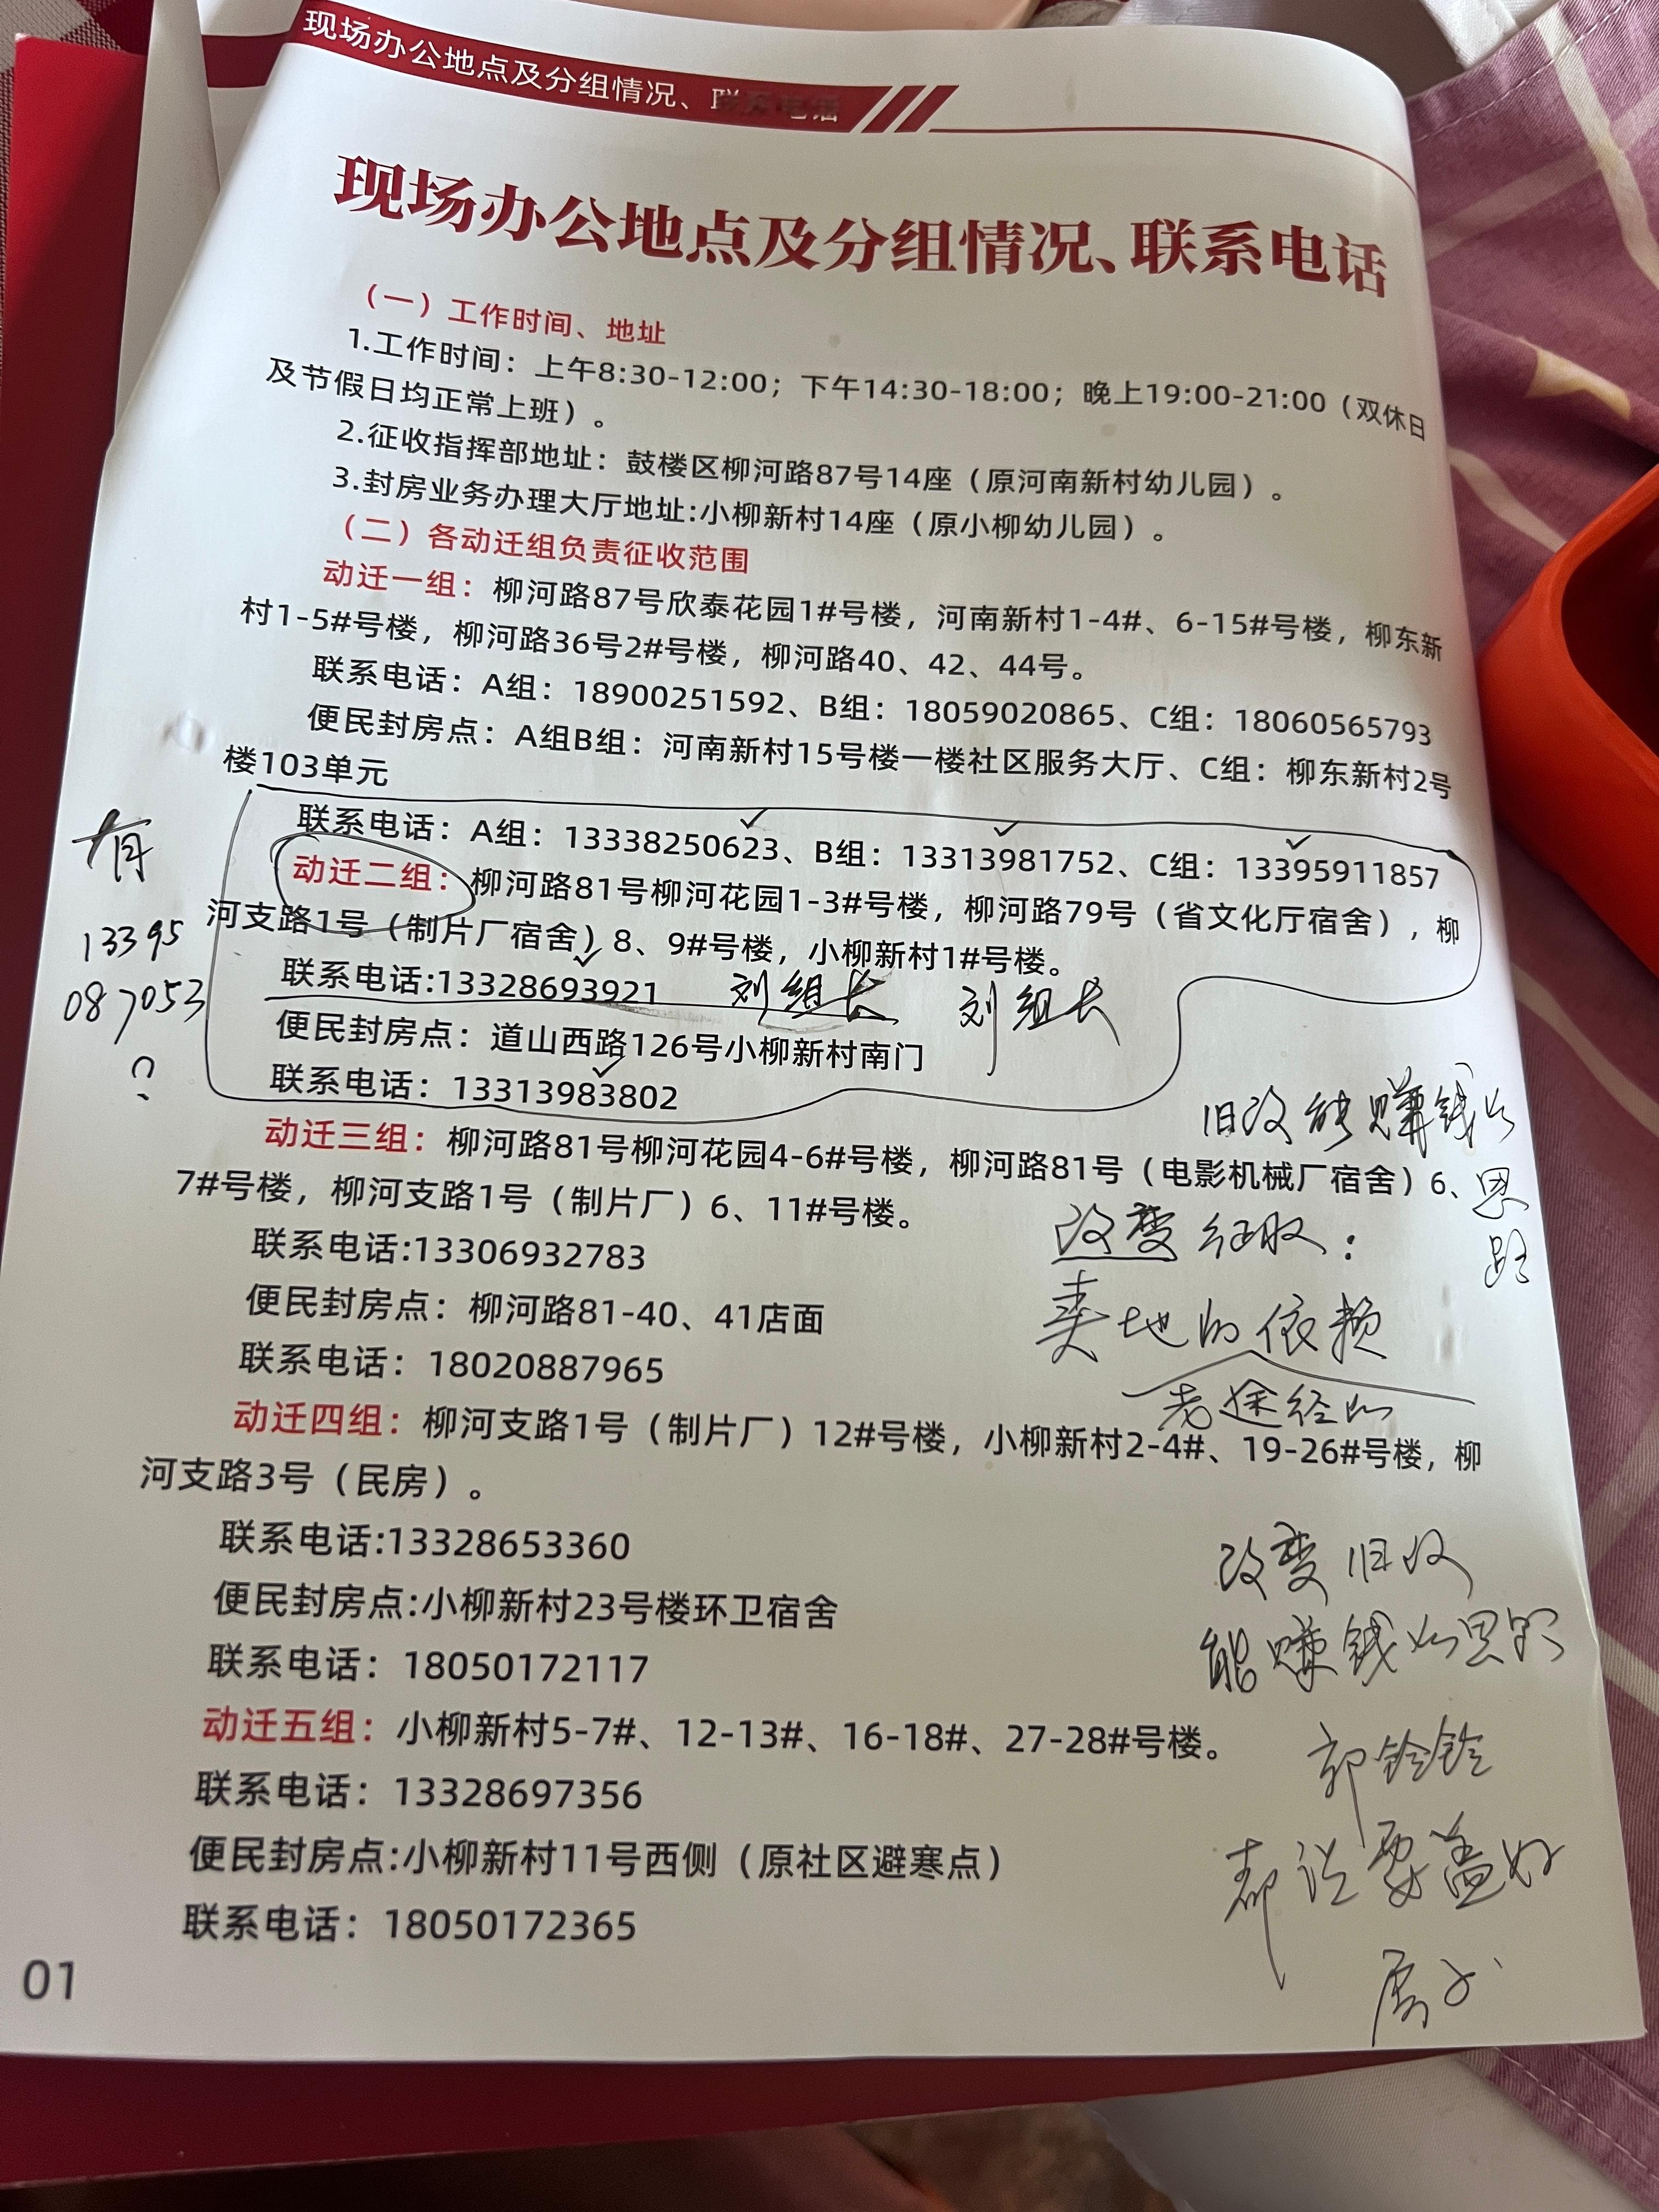 现场办公地点及分组情况、联系电话
现场办公地点及分组情况、联系电话
（一）工作时间、地址
1.工作时间：上午8:30-12:00；下午14:30-18:00；晚上19:00-21:00（双休日
及节假日均正常上班）。
2.征收指挥部地址：鼓楼区柳河路87号14座（原河南新村幼儿园）。
3.封房业务办理大厅地址:小柳新村14座（原小柳幼儿园）。
（二）各动迁组负责征收范围
动迁一组：柳河路87号欣泰花园1#号楼，河南新村1-4#、6-15#号楼，柳东新
村1-5#号楼，柳河路36号2#号楼，柳河路40、42、44号。
联系电话：A组：18900251592、B组：18059020865、C组：18060565793
便民封房点：A组B组：河南新村15号楼一楼社区服务大厅、C组：柳东新村2号
楼103单元
联系电话：A组：13338250623、B组：13313981752、C组：13395911857
动迁二组：柳河路81号柳河花园1-3#号楼，柳河路79号（省文化厅宿舍），柳
河支路1号（制片厂宿舍）8、9#号楼，小柳新村1#号楼。
联系电话:13328693921 刘组长 刘组长
便民封房点：道山西路126号小柳新村南门
联系电话：13313983802
13395
087053
?
旧改能赚钱的
思
路
动迁三组：柳河路81号柳河花园4-6#号楼，柳河路81号（电影机械厂宿舍）6、
7#号楼，柳河支路1号（制片厂）6、11#号楼。
改变征收：
联系电话:13306932783
卖地的依赖
便民封房点：柳河路81-40、41店面
联系电话：18020887965
老途径的
动迁四组：柳河支路1号（制片厂）12#号楼，小柳新村2-4#、19-26#号楼，柳
河支路3号（民房）。
联系电话:13328653360
改变旧改
便民封房点:小柳新村23号楼环卫宿舍
能赚钱的思路
联系电话：18050172117
动迁五组：小柳新村5-7#、12-13#、16-18#、27-28#号楼。
郭铃铃
联系电话：13328697356
都说要盖好
便民封房点:小柳新村11号西侧（原社区避寒点）
联系电话：18050172365
房子
01